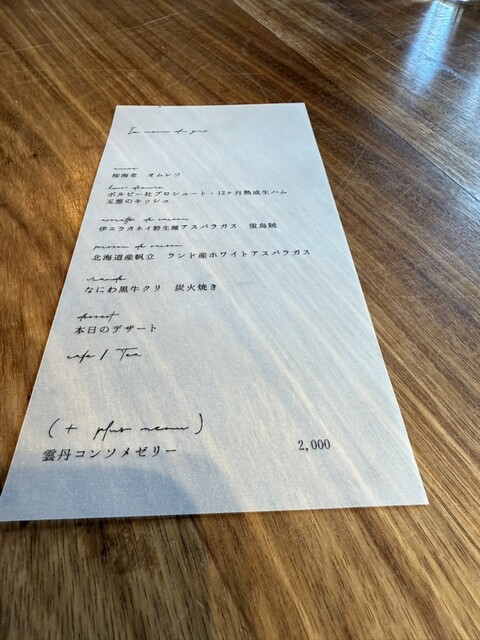 Le menu du jour
amuse
桜海老 オムレツ
hors d'œuvre
ボルピー社プロシュート・12ヶ月熟成生ハム
玉葱のキッシュ
assiette de saison
伊エラカネイ野生種アスパラガス 蛍烏賊
poisson de saison
北海道産帆立 ランド産ホワイトアスパラガス
viande
なにわ黒牛クリ 炭火焼き
dessert
本日のデザート
cafe / Tea
(+ plus menu)
雲丹コンソメゼリー 2,000